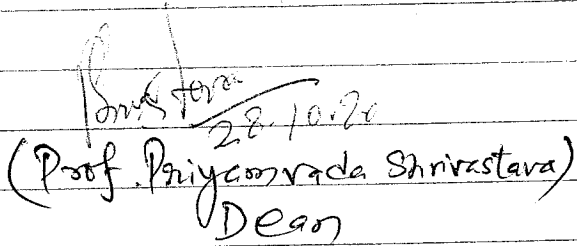 28.10.20
(Prof. Priyamvada Shrivastava)
Dean